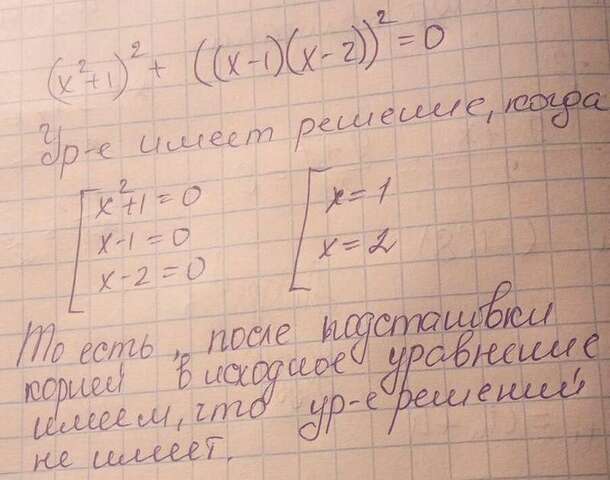 (x²+1)² + ((x-1)(x-2))² = 0
Ур-е имеет решение, когда
[ x²+1=0 [ x=1
x-1=0 x=2
x-2=0
То есть, после подстановки
корней в исходное уравнение
имеем, что ур-е решений
не имеет.